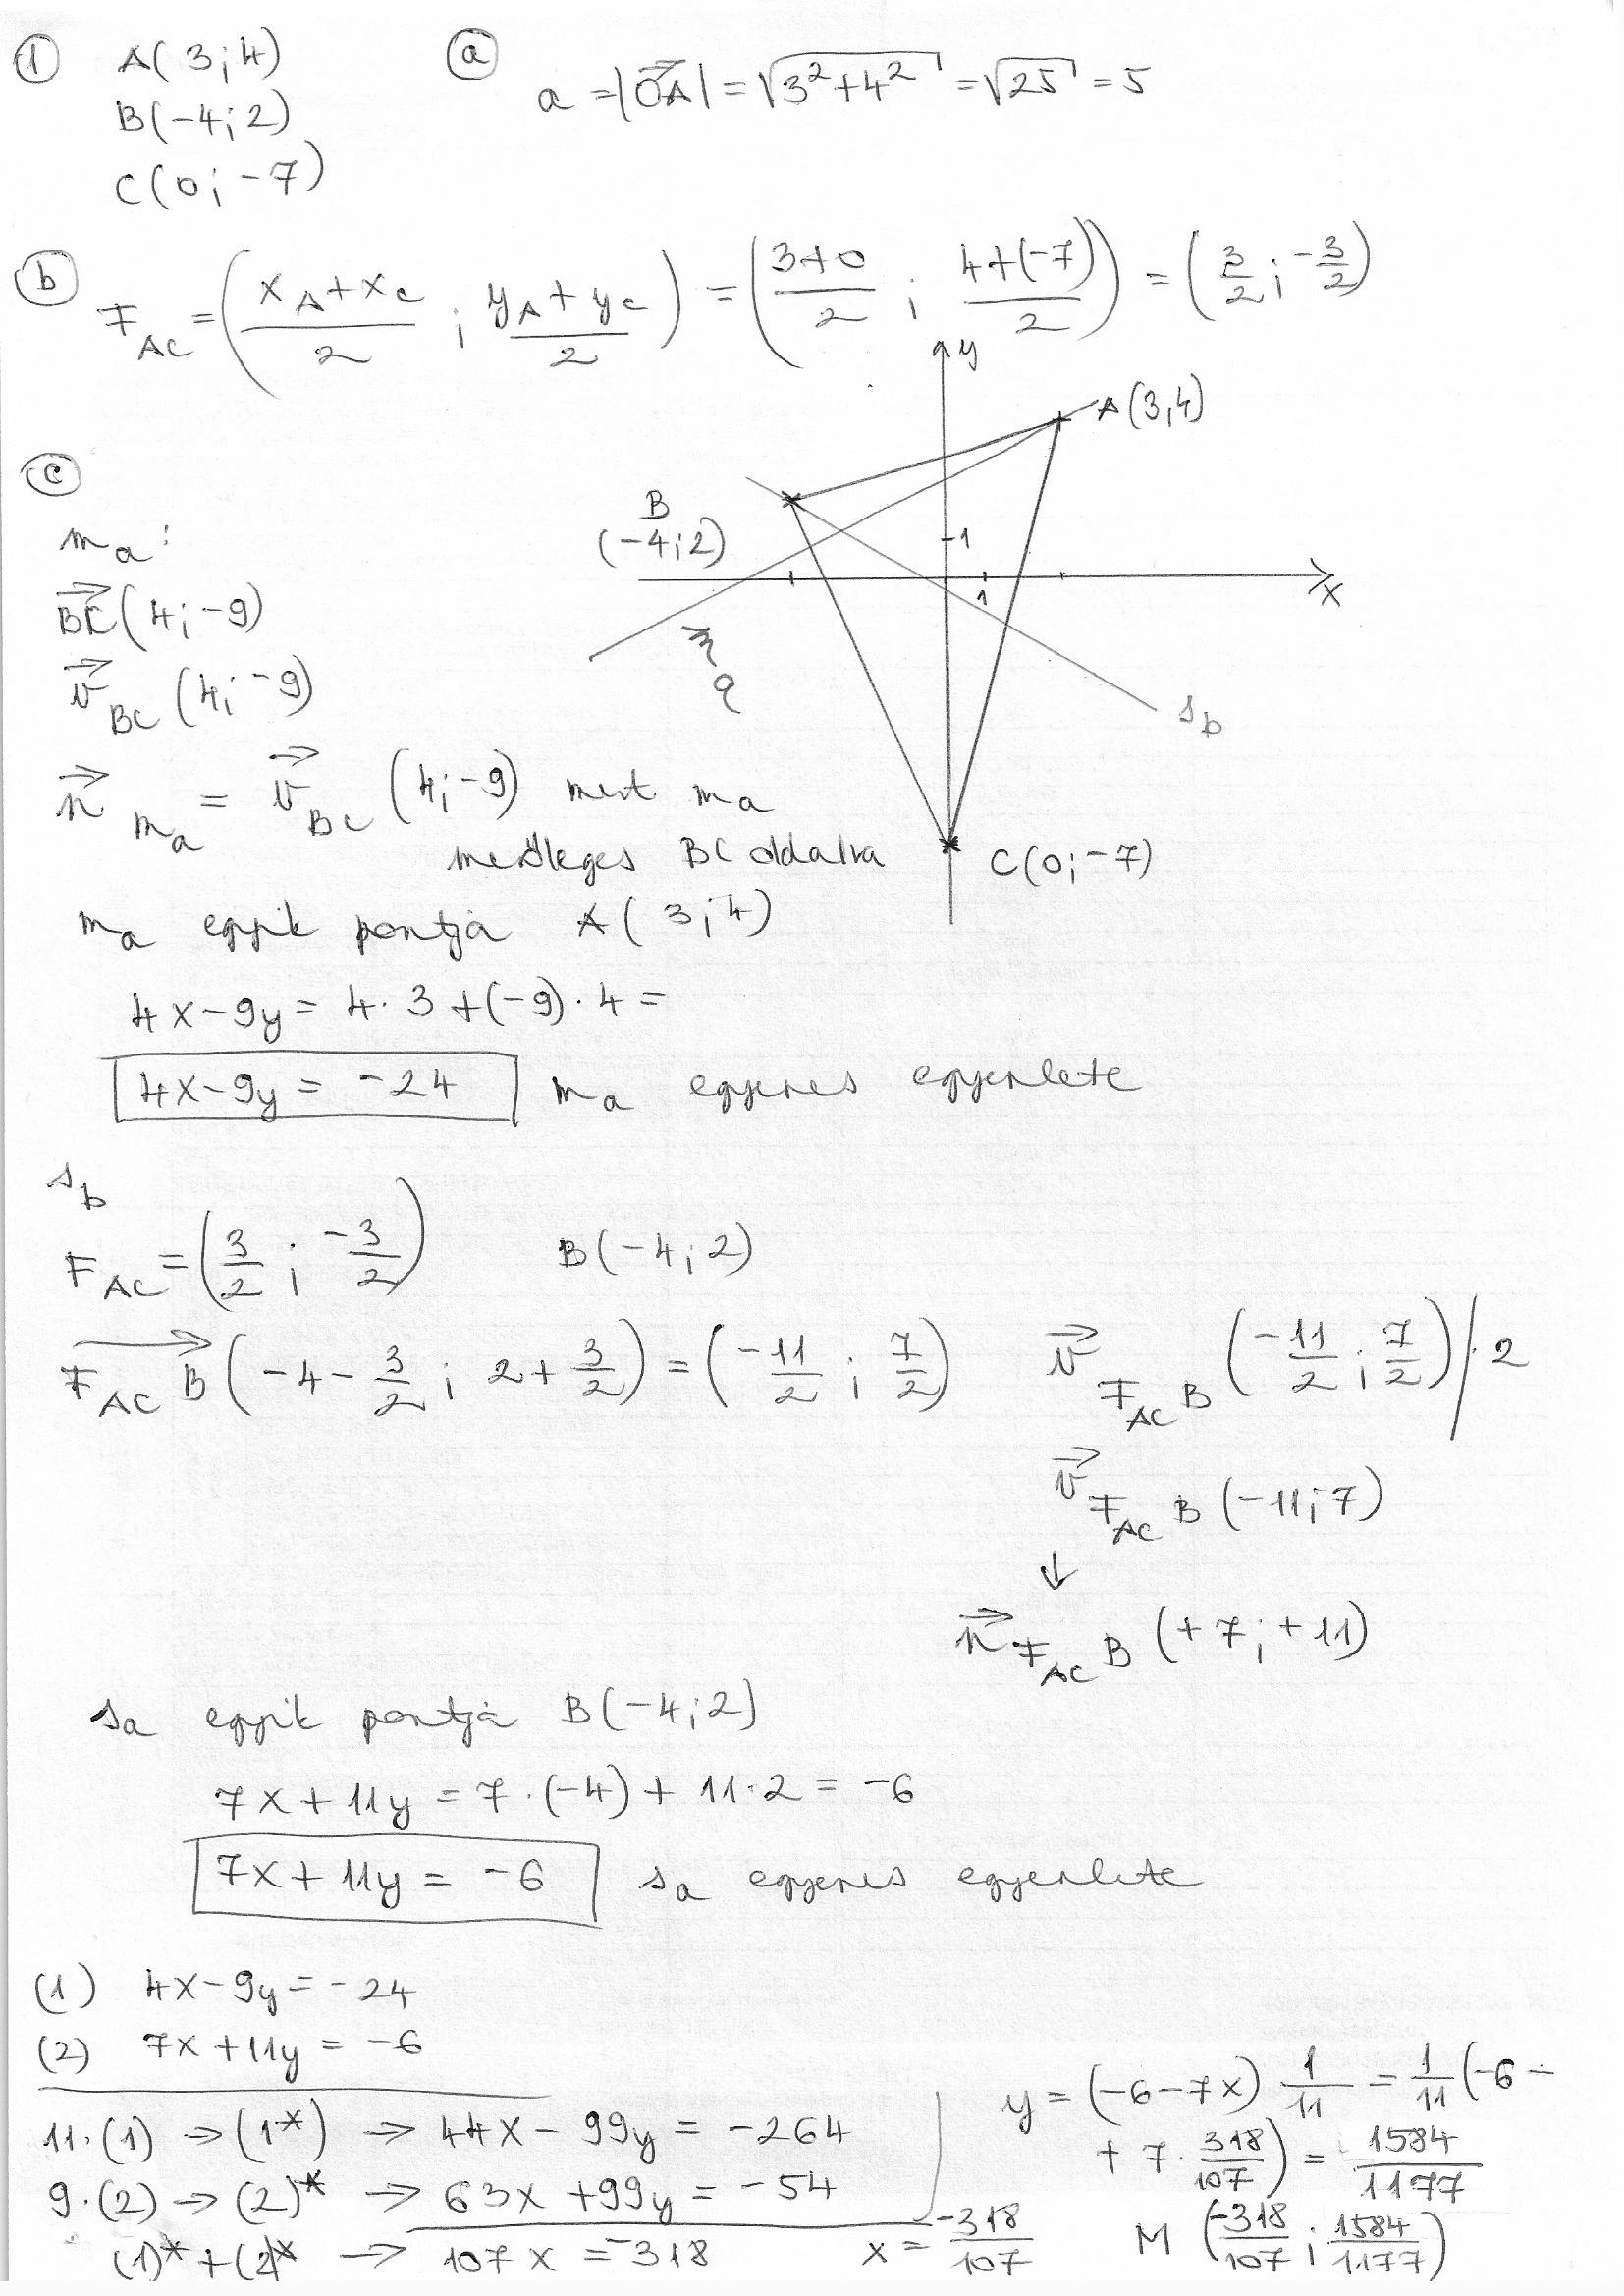 ① A(3;4) ⓐ a = |OA| = √3²+4² = √25 = 5
B(-4;2)
C(0;-7)
ⓑ F_AC = (x_A+x_C/2 ; y_A+y_C/2) = (3+0/2 ; 4+(-7)/2) = (3/2 ; -3/2)
y
A(3,4)
ⓒ
B
(-4;2)
-1
1
x
m_a
s_b
C(0;-7)
m_a:
BC(4;-9)
v_BC (4;-9)
n_m_a = v_BC (4;-9) mert m_a
merőleges BC oldalra
m_a egyik pontja A(3;4)
4x-9y = 4·3+(-9)·4 =
4x-9y = -24 m_a egyenes egyenlete
s_b
F_AC = (3/2 ; -3/2) B(-4;2)
F_AC B (-4-3/2 ; 2+3/2) = (-11/2 ; 7/2) v_F_AC B (-11/2 ; 7/2) /·2
v_F_AC B (-11;7)
↓
n_F_AC B (+7;+11)
s_a egyik pontja B(-4;2)
7x+11y = 7·(-4)+11·2 = -6
7x+11y = -6 s_a egyenes egyenlete
(1) 4x-9y = -24
(2) 7x+11y = -6
11·(1) → (1*) → 44x - 99y = -264
9·(2) → (2)* → 63x +99y = -54
(1)*+(2)* → 107x = -318 x = -318/107
y = (-6-7x) 1/11 = 1/11 (-6 -
+ 7·318/107) = 1584/1177
M (-318/107 ; 1584/1177)